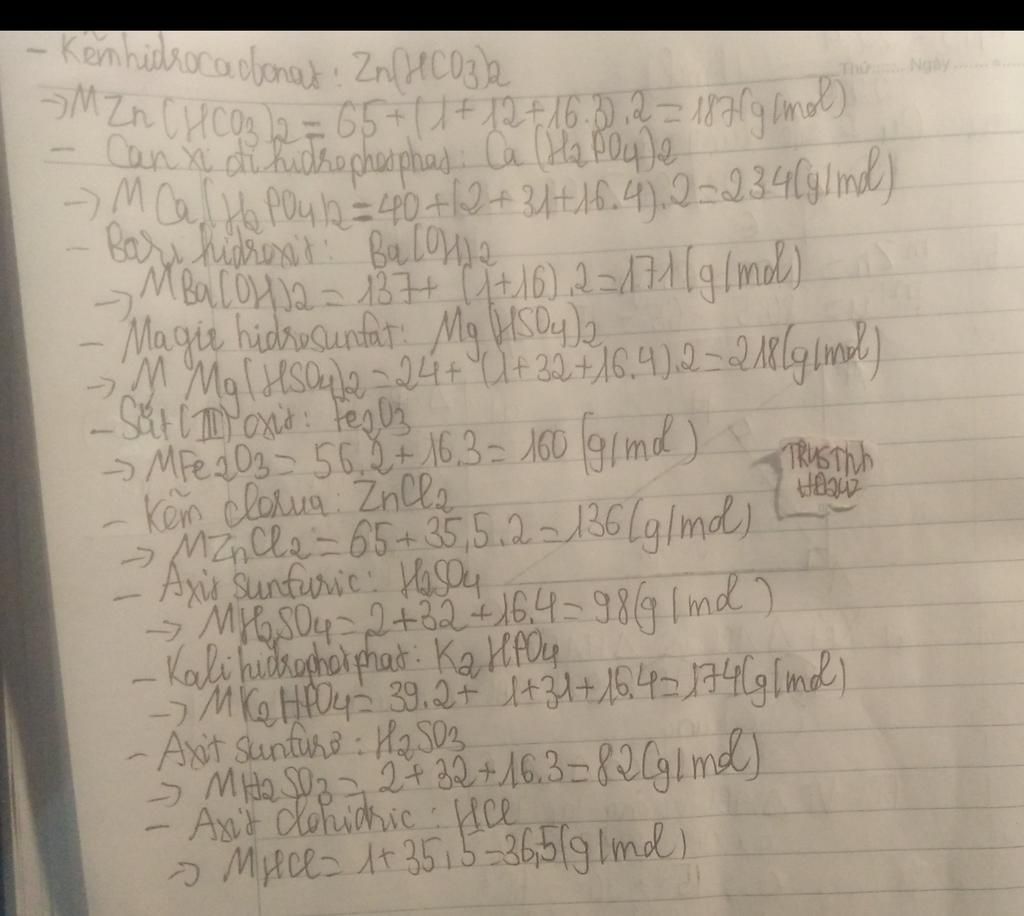 Thứ...... Ngày..........
- Kẽmhidrocacbonat: Zn(HCO3)2
→ MZn(HCO3)2 = 65+(1+12+16.3).2=187(g/mol)
- Canxi đihidrophotphat: Ca(H2PO4)2
→ MCa(H2PO4)2=40+(2+31+16.4).2=234(g/mol)
- Bari hidroxit: Ba(OH)2
→ MBa(OH)2=137+ (1+16).2=171(g/mol)
- Magie hidrosunfat: Mg(HSO4)2
→ M Mg(HSO4)2=24+ (1+32+16.4).2=218(g/mol)
- Sắt(III) oxit: Fe2O3
→ MFe2O3= 56.2+16.3= 160 (g/mol)
TRUSThh
- Kẽm clorua: ZnCl2
→ MZnCl2=65+35,5.2=136(g/mol)
- Axit sunfuric: H2SO4
→ MH2SO4=2+32+16.4=98(g/mol)
- Kali hidrophotphat: K2HPO4
→ MK2HPO4=39.2+ 1+31+16.4=174(g/mol)
- Axit sunfurơ: H2SO3
→ MH2SO3=2+32+16.3=82(g/mol)
- Axit clohidric: HCl
→ MHCl=1+35,5=36,5(g/mol)